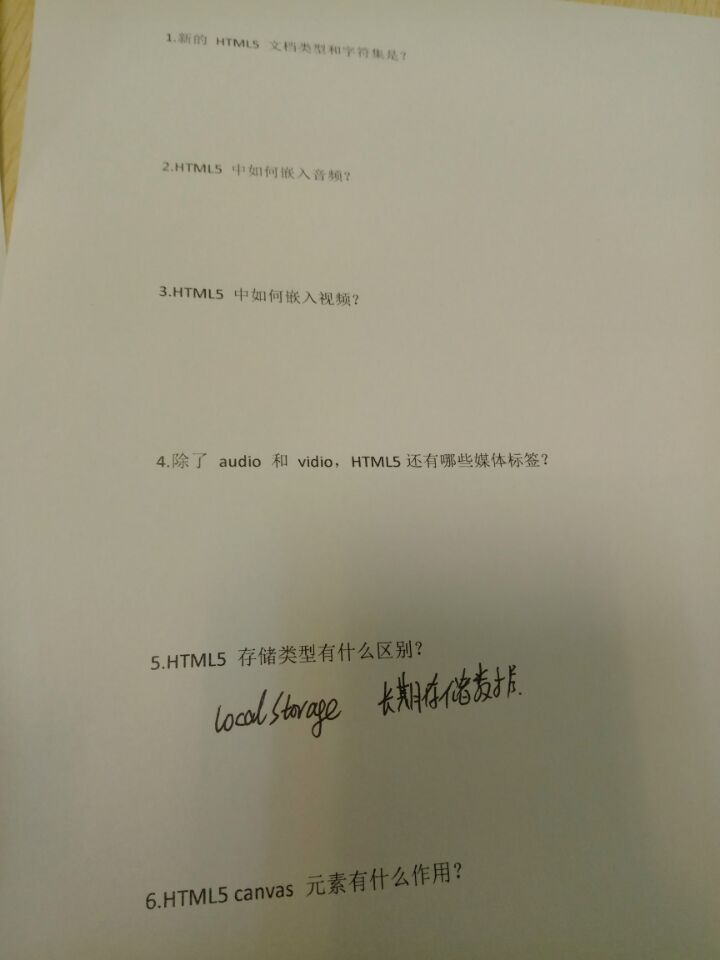 1.新的 HTML5 文档类型和字符集是?
2.HTML5 中如何嵌入音频?
3.HTML5 中如何嵌入视频?
4.除了 audio 和 vidio，HTML5 还有哪些媒体标签?
5.HTML5 存储类型有什么区别?
localStorage 长期存储数据.
6.HTML5 canvas 元素有什么作用?